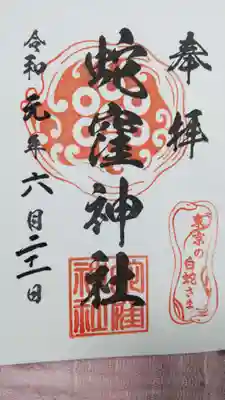 奉拝
東京の白蛇さま
蛇窪神社
蛇窪神社
令和元年六月二十一日